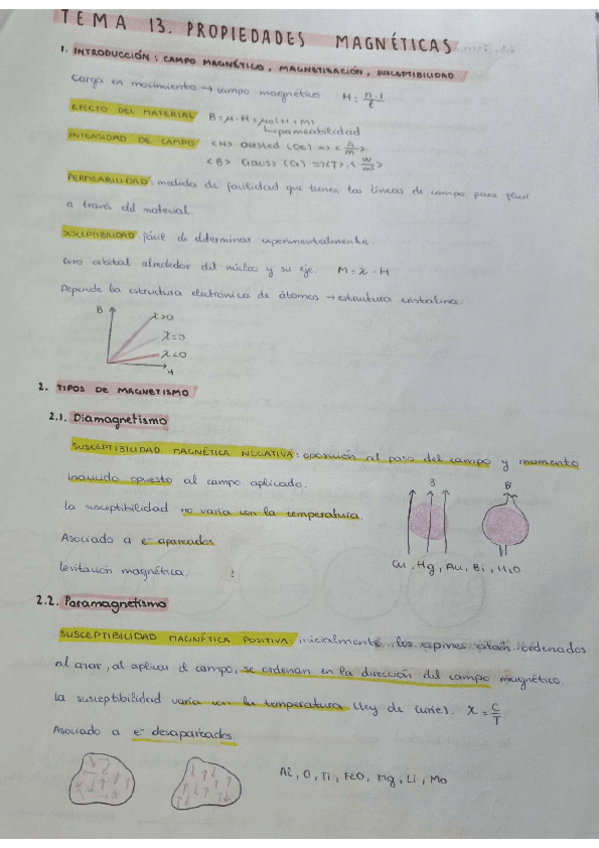 TEMA 13. PROPIEDADES MAGNÉTICAS
1. INTRODUCCIÓN: CAMPO MAGNÉTICO, MAGNETIZACIÓN, SUSCEPTIBILIDAD
Carga en movimiento → campo magnético H = n·I/l
EFECTO DEL MATERIAL B = μ·H = μ0(H + M)
↳ permeabilidad
INTENSIDAD DE CAMPO <H> Oersted (Oe) => <A/m>
<B> Gauss (G) => (T), <W/m²>
PERMEABILIDAD: medida de facilidad que tienen las líneas de campo para pasar
a través del material.
SUSCEPTIBILIDAD: fácil de determinar experimentalmente.
Giro orbital alrededor del núcleo y su eje. M = χ · H
Depende la estructura electrónica de átomos → estructura cristalina.
B
χ>0
χ=0
χ<0
H
2. TIPOS DE MAGNETISMO
2.1. Diamagnetismo
SUSCEPTIBILIDAD MAGNÉTICA NEGATIVA: oposición al paso del campo y momento
inducido opuesto al campo aplicado.
B B
la susceptibilidad no varía con la temperatura.
Asociado a e⁻ apareados
levitación magnética.
Cu, Hg, Au, Bi, H2O
2.2. Paramagnetismo
SUSCEPTIBILIDAD MAGNÉTICA POSITIVA: inicialmente los espines están ordenados
al azar, al aplicar el campo, se ordenan en la dirección del campo magnético.
la susceptibilidad varía con la temperatura (ley de Curie). χ = C/T
Asociado a e⁻ desapareados
Al, O, Ti, FeO, Mg, Li, Mo